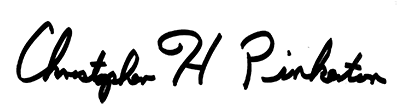 Christopher H Pinkerton